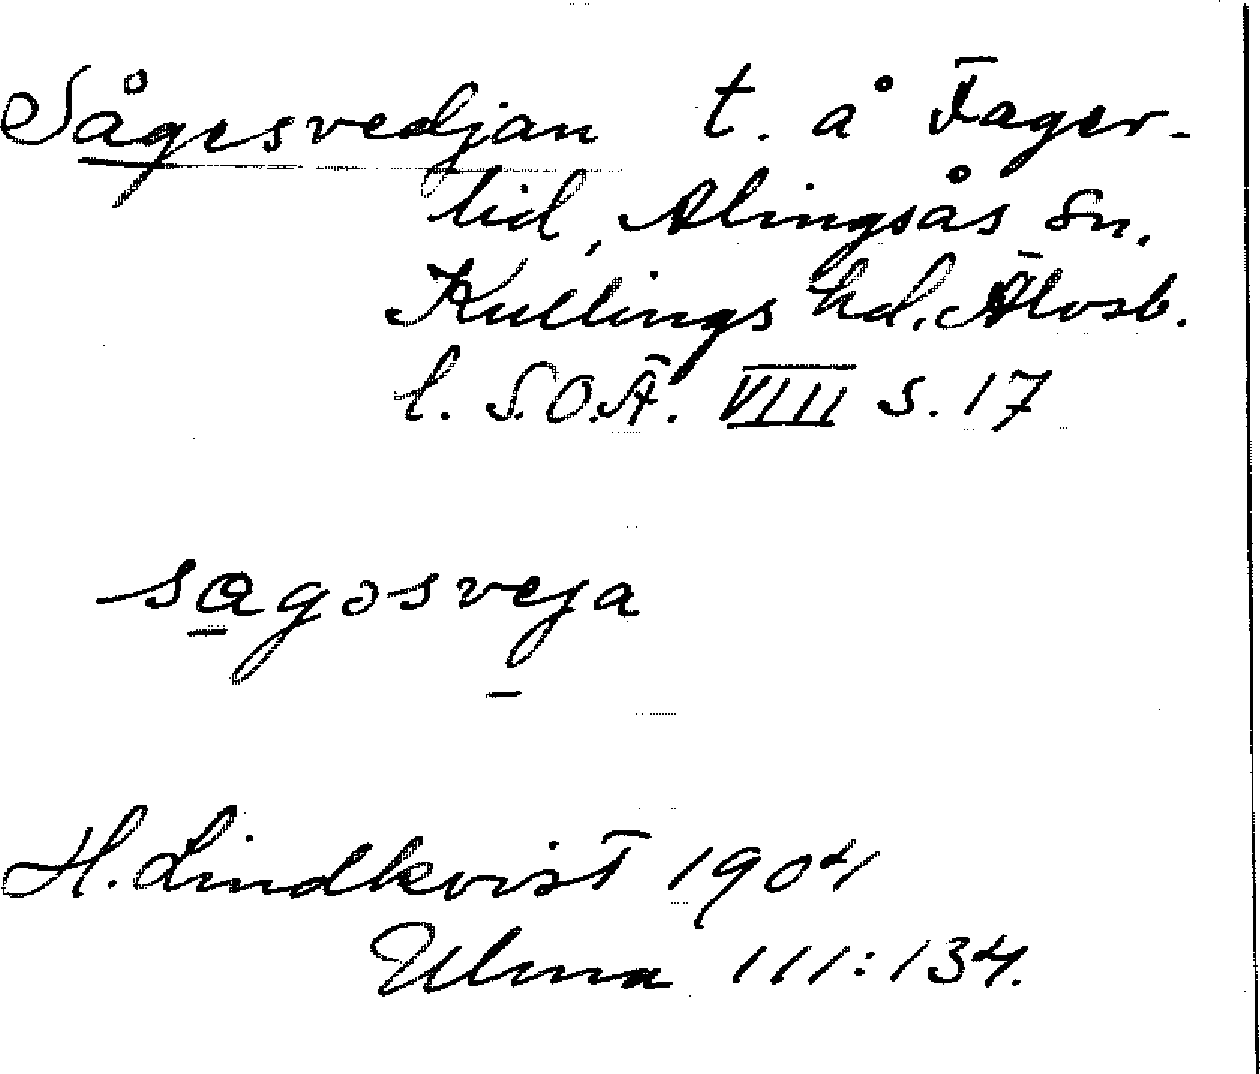 Sågesvedjan t. å Fager-
lid, Alingsås Sn.
Kullings hd. Älvsb.
l. S.O.Ä. VIII s. 17
sagosveja
H. Lindkvist 1904
Ulma 111:134.